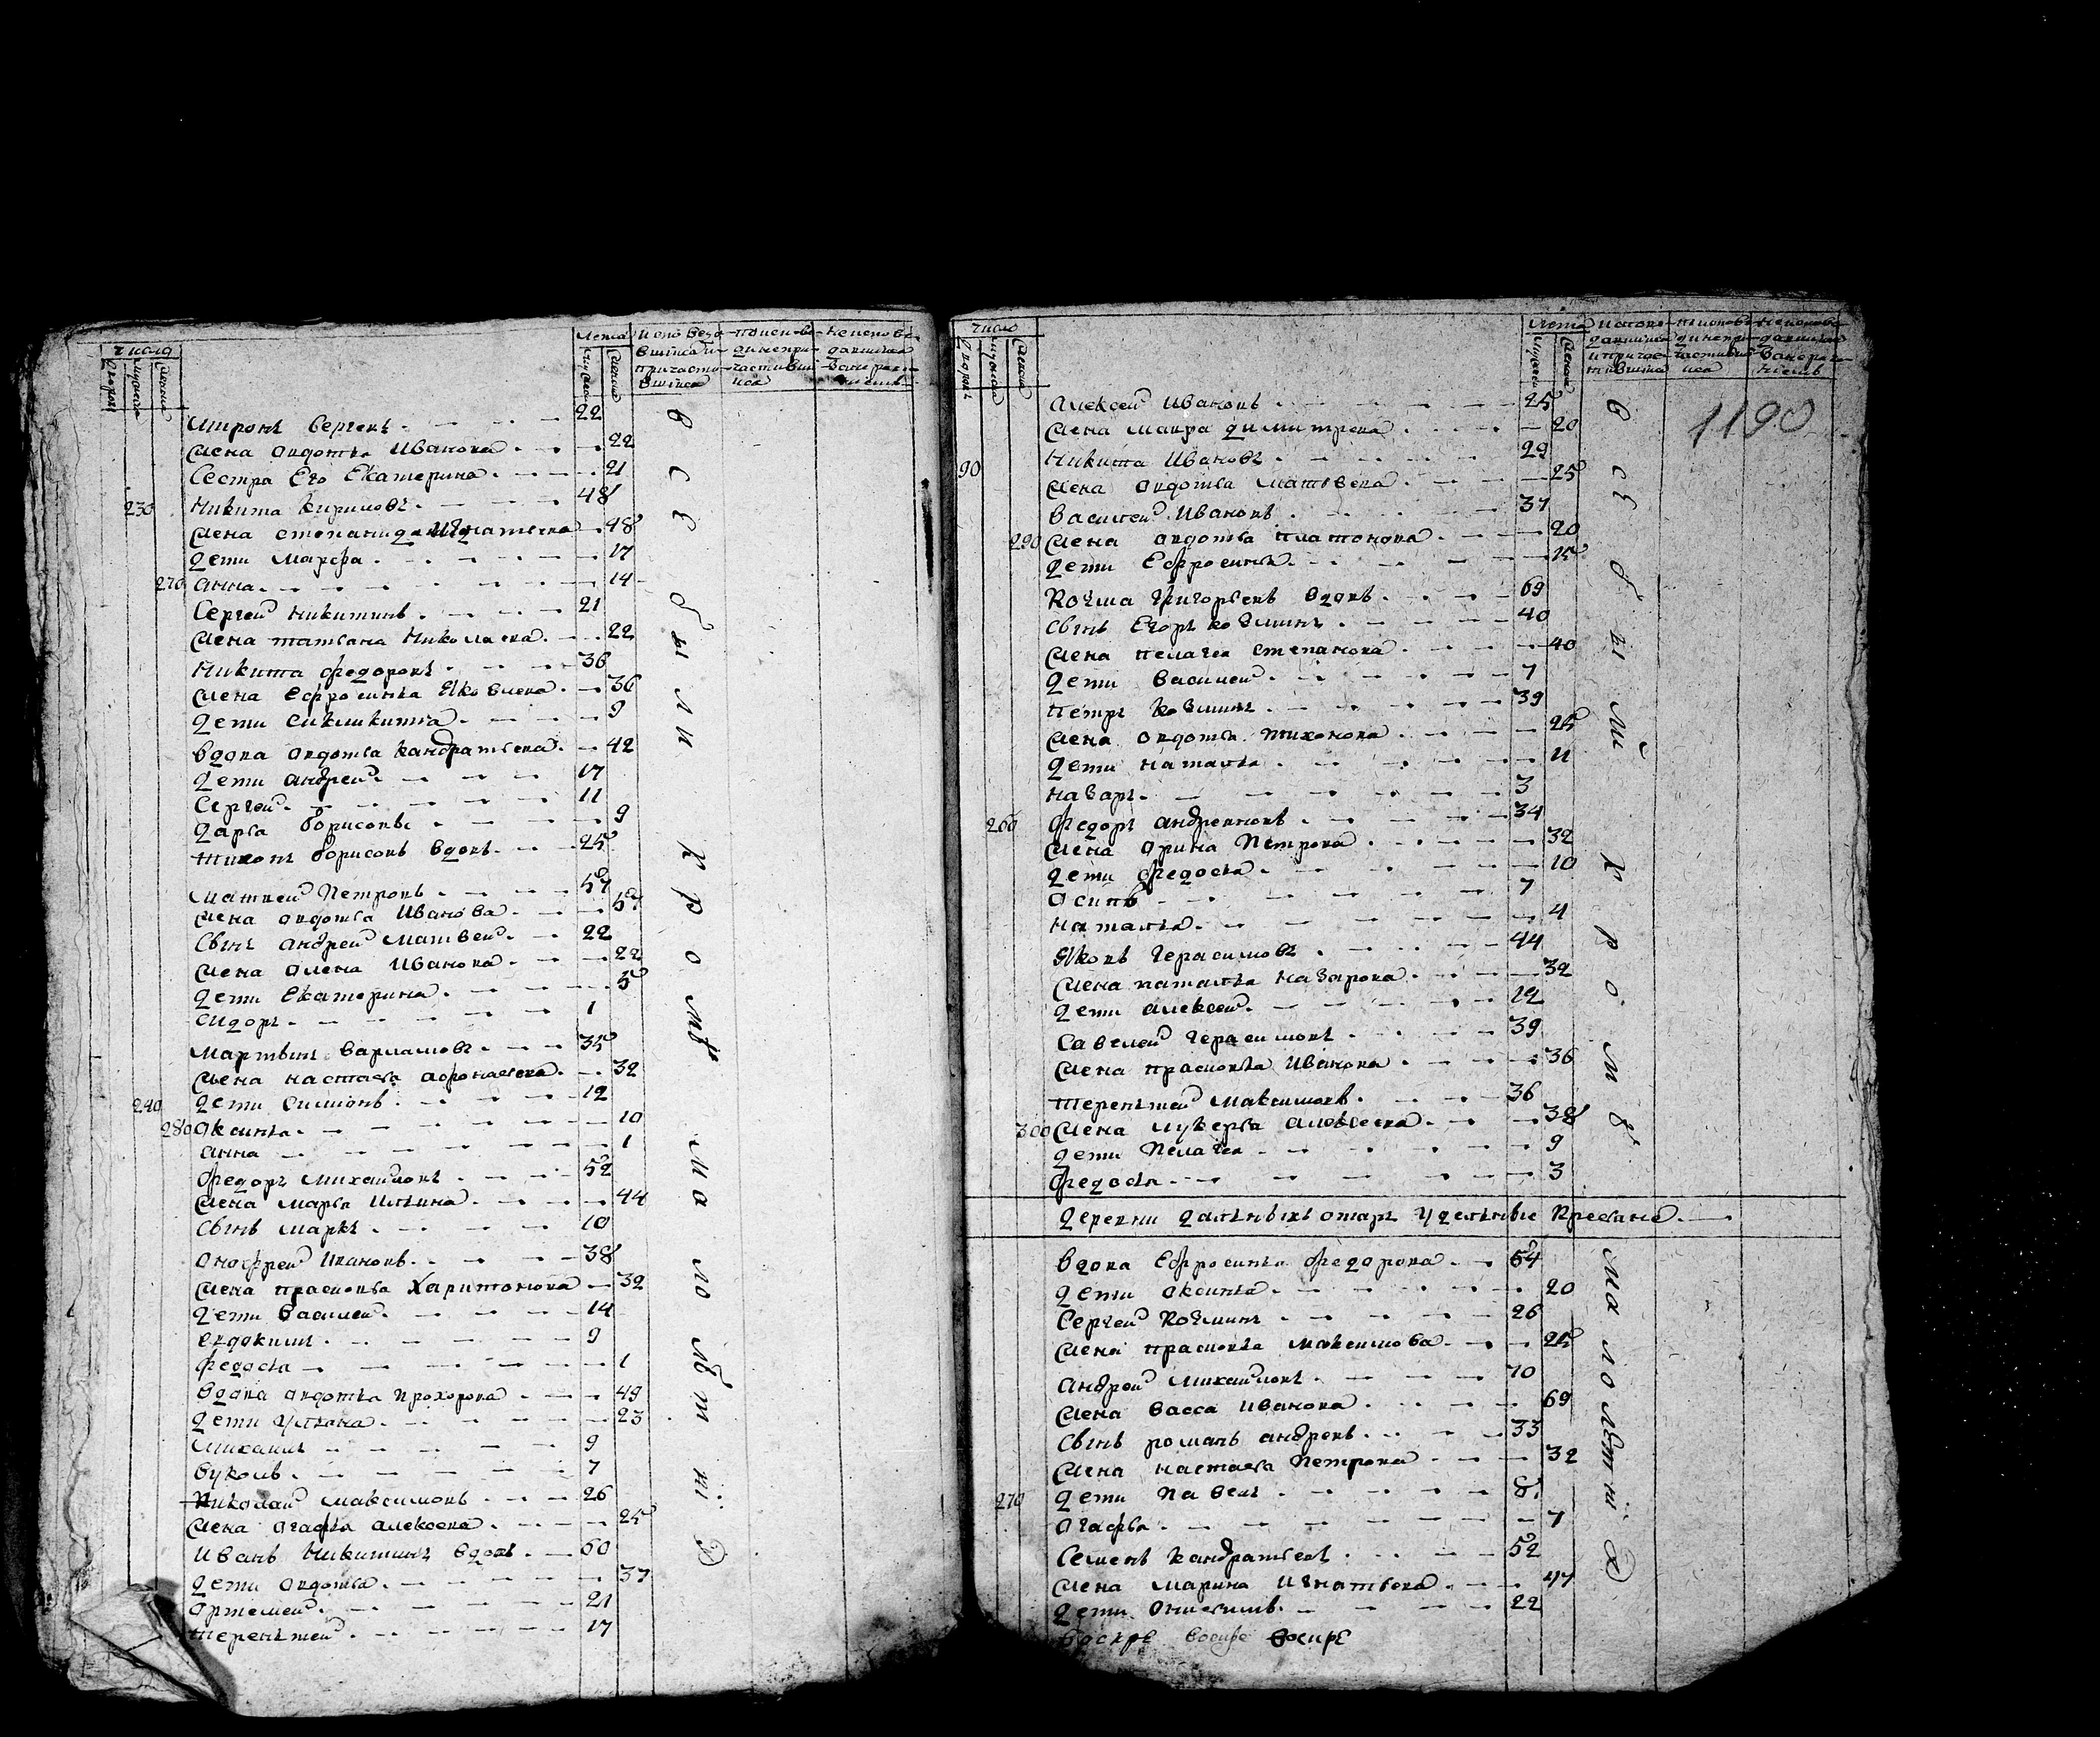 число
лета
Миронъ Сергеевъ 22
жена авдотья Иванова 22
Сестра Его Екатерина 21
230 Никита Кириловъ 48
жена степанида Игнатьева 48
дети Марфа 17
270 анна 14
Сергей Никитинъ 21
жена татьана Николаева 22
Никита федоровъ 36
жена Ефросинья Яковлева 36
дети Сикликитиа 9
вдова авдотья кандратьева 42
дети андрей 17
Сергей 11
дарья борисовы 9
тихонъ борисовъ вдовъ 25
Матвей Петровъ 57
жена авдотья Иванова 57
Сынъ андрей Матвеев 22
жена алена Иванова 22
дети Екатерина 5
сидоръ 1
Мартынъ варламовъ 35
жена настасья афонасьева 32
240 дети Симионъ 12
280 аксинья 10
анна 1
федоръ Михайловъ 52
жена Марья Ильина 44
Сынъ Маркъ 10
анофрей Ивановъ 38
жена прасковья Харитонова 32
дети Василей 14
евдокимъ 9
федосья 1
вдова авдотья Прохорова 49
дети Ульяна 23
Михаилъ 9
Вуколъ 7
Николай Максимовъ 26
жена агафья алексеева 25
Иванъ Никитинъ вдовъ 60
дети авдотья 37
артемей 21
терентей 17
всЕ были кромѣ малолѣтнiхъ
число
лета
1190
алексей Ивановъ 25
жена Мавра димитрева 20
90 Никита Ивановъ 29
жена авдотья Матвеева 25
василей Ивановъ 37
290 жена авдотья платонова 20
дети Ефросинья 15
Козма Григорьевъ вдовъ 69
сынъ Егоръ козминъ 40
жена пелагея степанова 40
дети василей 7
петръ козминъ 39
жена авдотья тихонова 25
дети наталья 11
назаръ 3
260 федоръ андреяновъ 34
жена арина Петрова 32
дети федосья 10
осипъ 7
наталья 4
Яковъ герасимовъ 44
жена наталья назарова 32
дети алексей 12
Савелей герасимовъ 39
жена прасковья Иванова 36
терентей Максимовъ 36
300 жена лукерья алексеева 38
дети Пелагея 9
федосья 3
деревни дальныхъ отаръ Уделныe Кресьяне
вдова Ефросинья федорова 54
дети аксинья 20
Сергей Козминъ 26
жена прасковья Максимова 25
андрей Михайловъ 70
жена васса Иванова 69
Сынъ романъ андреевъ 33
жена настасья Петрова 32
270 дети Павелъ 8
агафья 7
Семенъ кандратьевъ 52
жена Марина Игнатьева 47
дети анисимъ 22
воскре воскре воскрЕ
всЕ были кромѣ малолѣтнiхъ